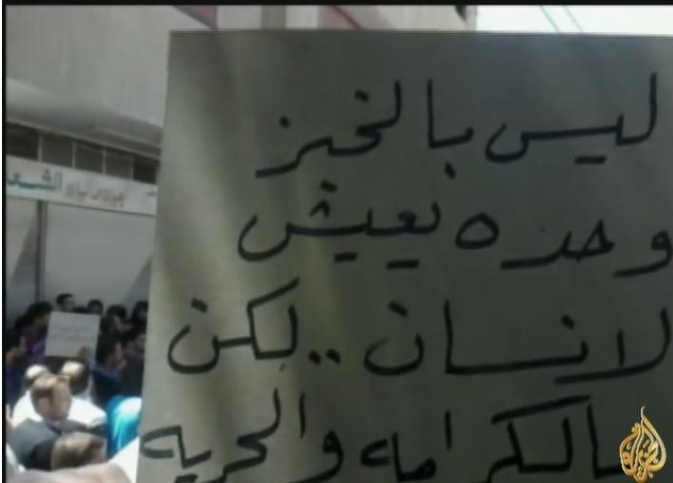 ليس بالخبز
وحده يعيش
لانسان .. لكن
بالكرامه والحريه